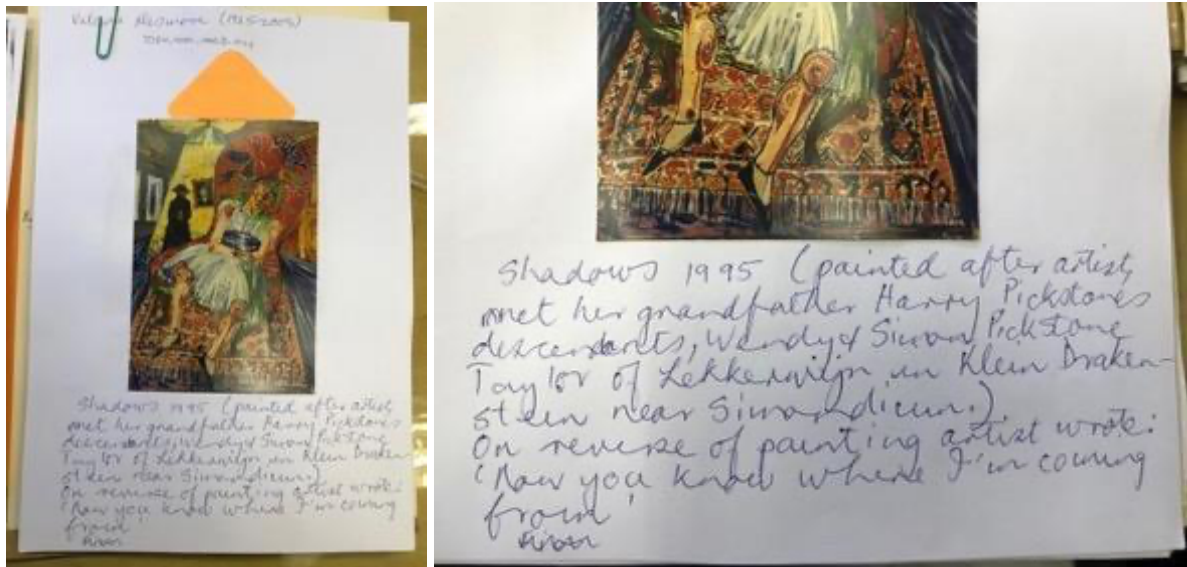 Valerie Desmore (1925-2008)
Shadows 1995 (painted after artist
met her grandfather Harry Pickstones
descendents, Wendy & Simon Pickstone
Taylor of Lekkerwijn in Klein Draken-
stein near Simondium.)
On reverse of painting artist wrote:
'Now you know where I'm coming
from'
Shadows 1995 (painted after artist
met her grandfather Harry Pickstones
descendents, Wendy & Simon Pickstone
Taylor of Lekkerwijn in Klein Draken-
stein near Simondium.)
On reverse of painting artist wrote:
'Now you know where I'm coming
from'